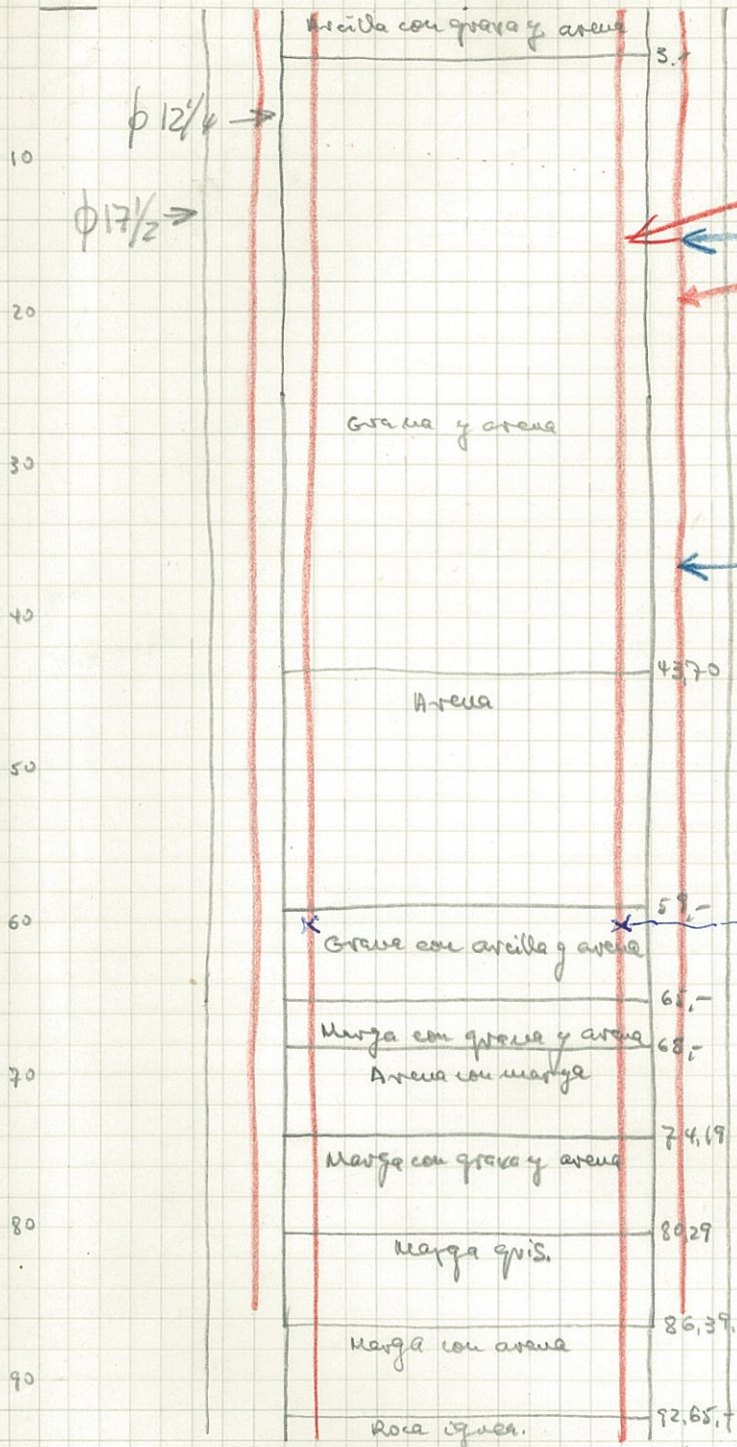 Arcilla con grava y arena
3.-
φ 12 1/4 →
10
φ 17 1/2 →
20
Grava y arena
30
40
43,70
Arena
50
59,-
60
Grava con arcilla y arena
65,-
Marga con grava y arena
68,-
70
Arena con marga
74,19
Marga con grava y arena
80
80,29
Marga gris.
86,39,
Marga con arena
90
92,65,-
Roca ignea.